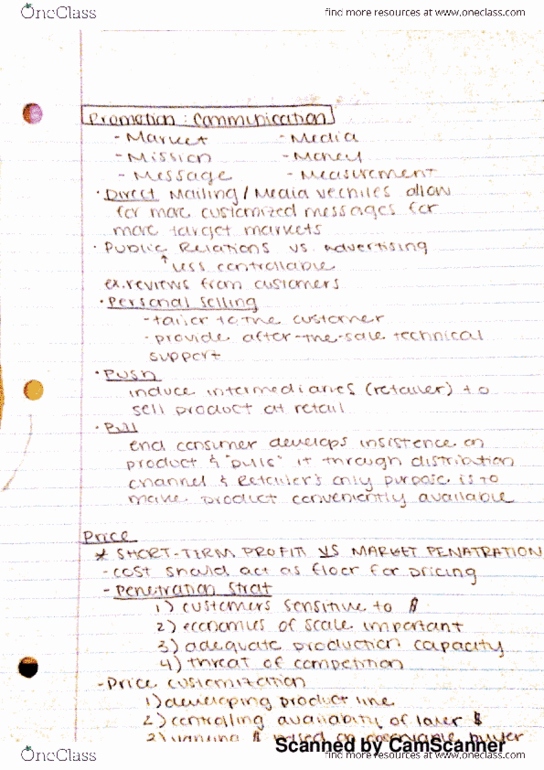 OneClass
find more resources at www.oneclass.com
Promotion : Communication
- Market - Media
- Mission - Money
- Message - Measurement
· Direct Mailing / Media vechiles allow
for more customized messages for
more target markets
· Public Relations vs advertising
↑ less controllable
ex. reviews from customers
· Personal Selling
- tailor to the customer
- provide after-the-sale technical
support
· Push
induce intermediaries (retailer) to
sell product at retail
· Pull
end consumer develops insistence on
product & "pulls" it through distribution
channel & retailer's only purpose is to
make product conveniently available
Price
* SHORT-TERM PROFIT VS MARKET PENATRATION
- cost should act as floor for pricing
- Penetration Strat
1) customers sensitive to $
2) economies of scale important
3) adequate production capacity
4) threat of competition
- Price customization
1) developing product line
2) controlling availability of lower $
3) varying $ based on buyer
Scanned by CamScanner
OneClass
find more resources at www.oneclass.com